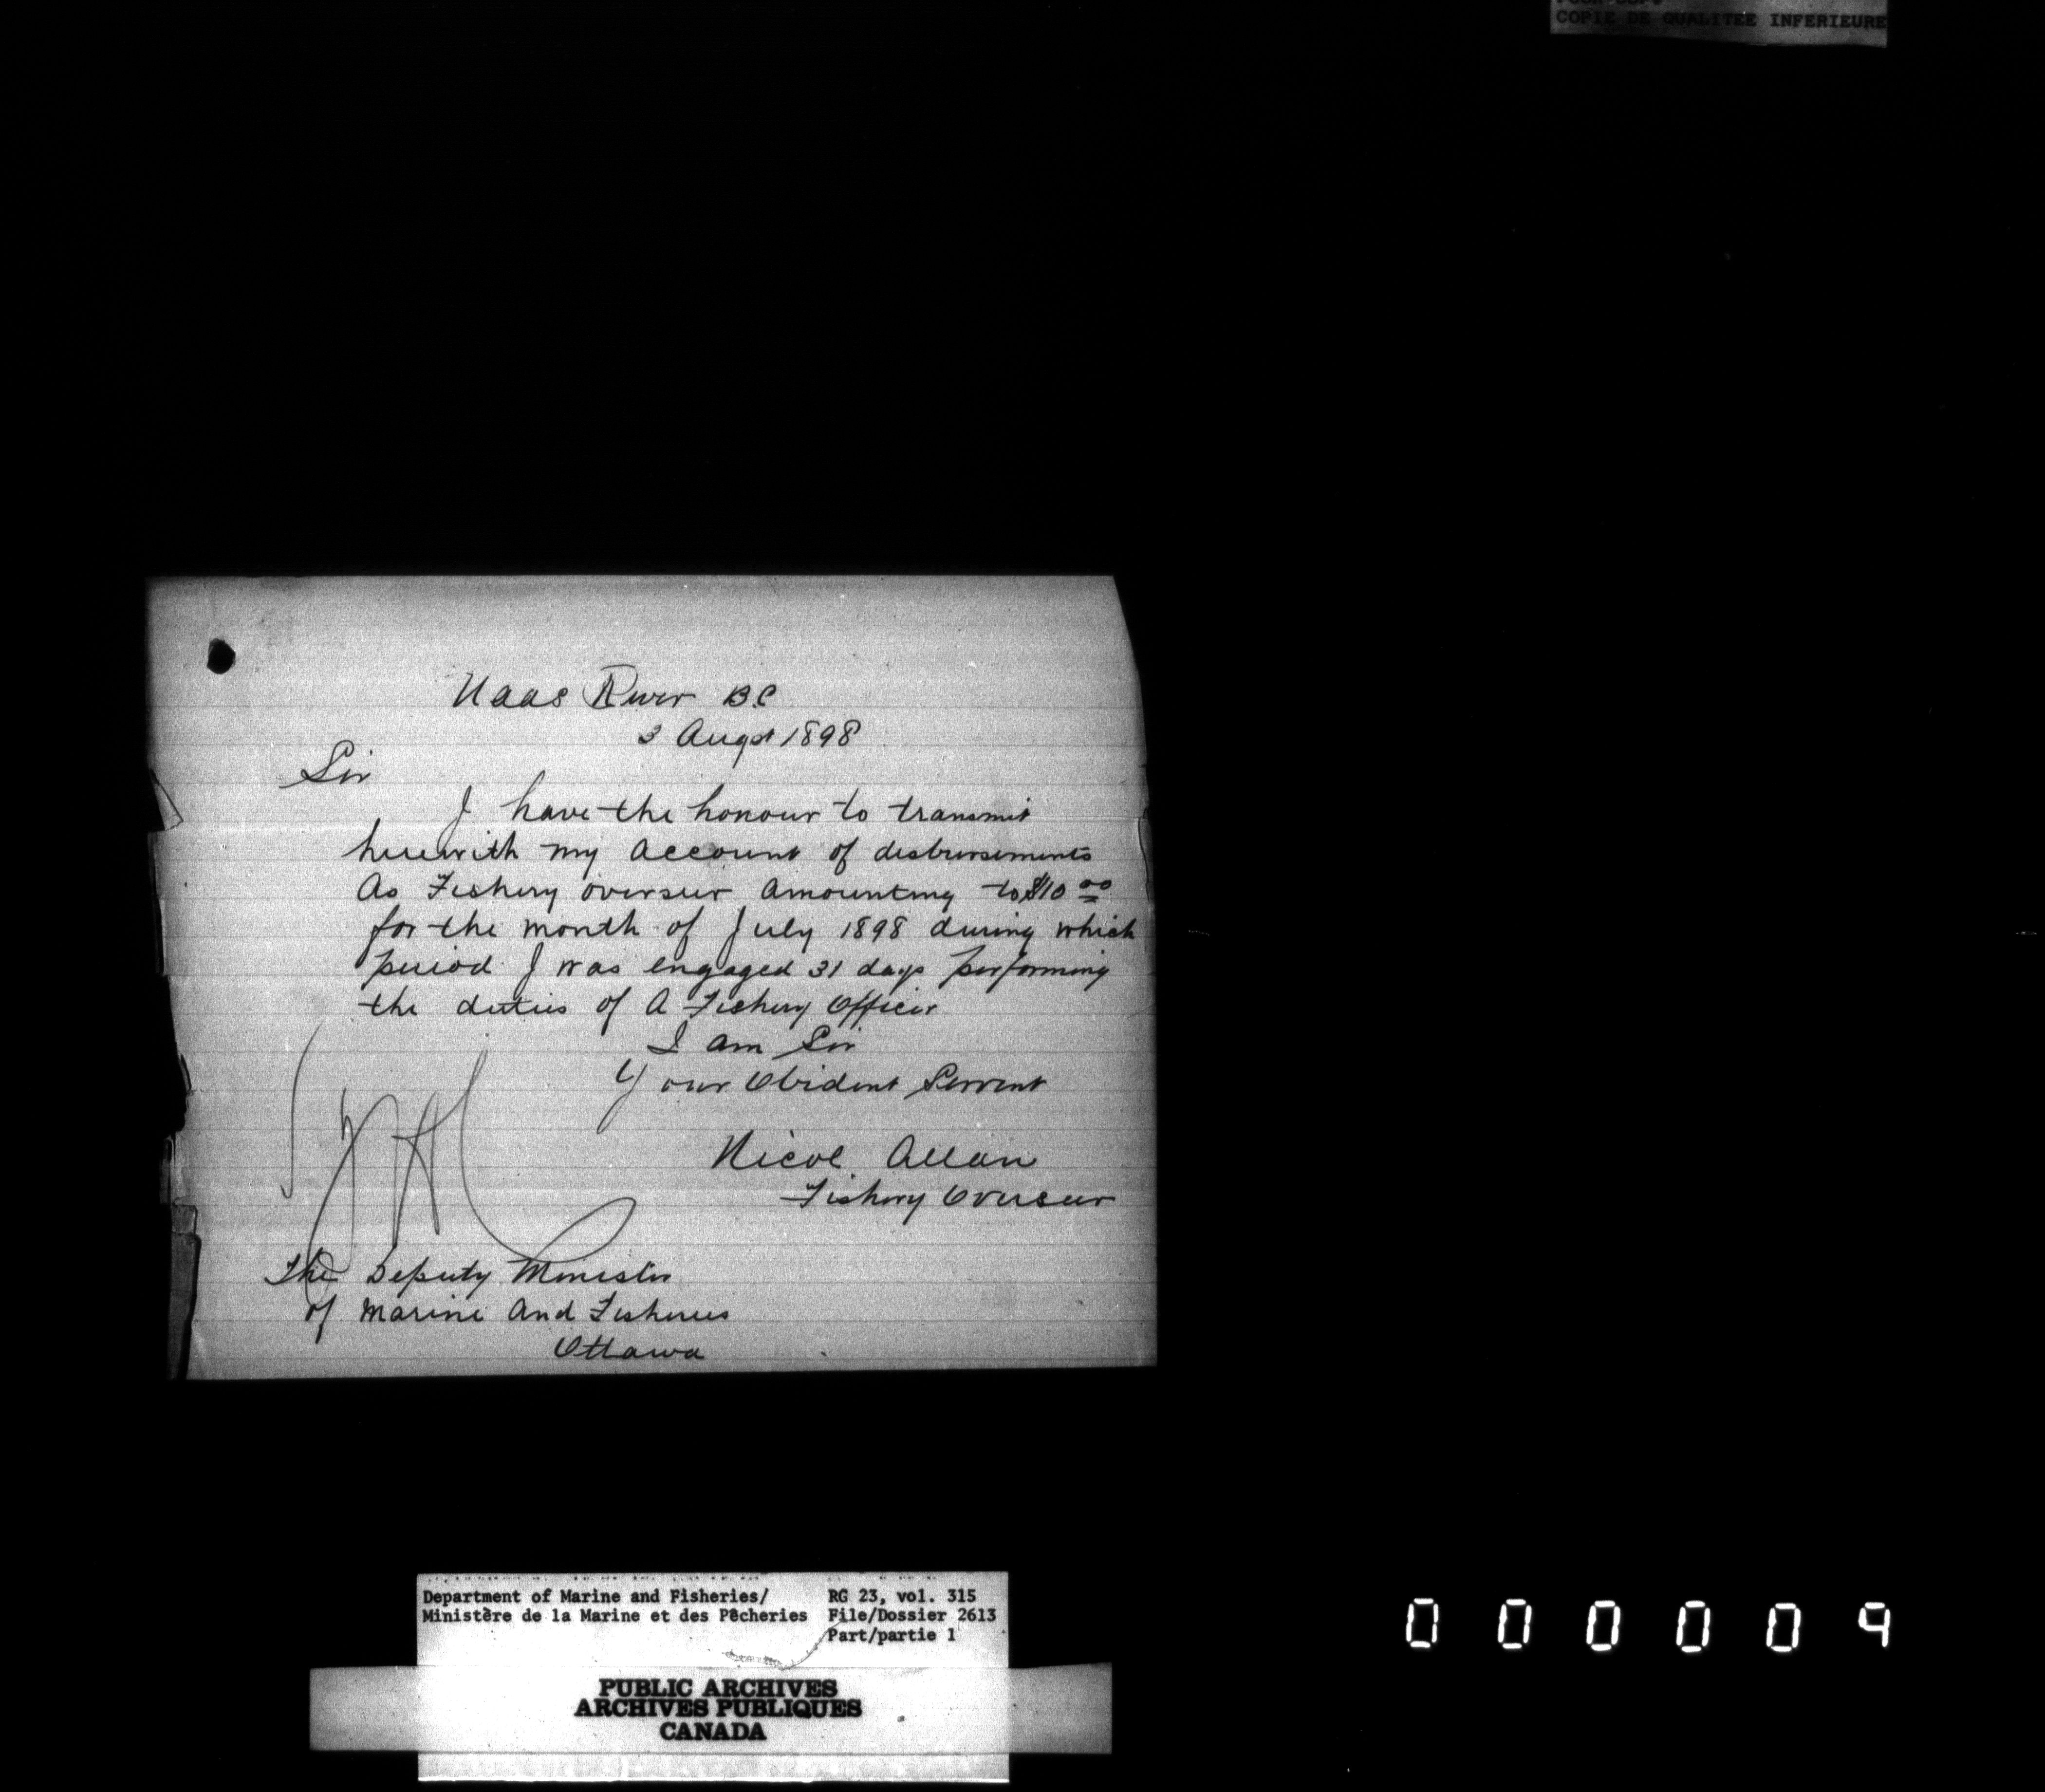 COPIE DE QUALITEE INFERIEURE
Naas River B.C
3 Augst 1898
Sir
I have the honour to transmit
herewith my account of disbursements
As Fishery overseer amounting to $10 00
for the month of July 1898 during which
period I was engaged 31 days performing
the duties of A Fishery Officer
I am Sir
Your Obident Servent
Nicol Allan
Fishery Overseer
The Deputy Minister
of Marine And Fisheries
Ottawa
Department of Marine and Fisheries/ RG 23, vol. 315
Ministère de la Marine et des Pêcheries File/Dossier 2613
Part/partie 1
PUBLIC ARCHIVES
ARCHIVES PUBLIQUES
CANADA
000009